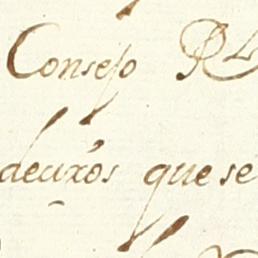 Consejo Rl
que se